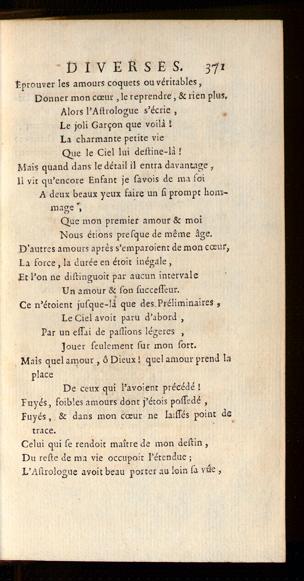 DIVERSES. 371
Eprouver les amours coquets ou véritables,
Donner mon cœur, le reprendre, & rien plus.
Alors l'Astrologue s'écrie,
Le joli Garçon que voilà!
La charmante petite vie
Que le Ciel lui destine-là!
Mais quand dans le détail il entra davantage,
Il vit qu'encore Enfant je savois de ma foi
A deux beaux yeux faire un si prompt hom-
mage,
Que mon premier amour & moi
Nous étions presque de même âge.
D'autres amours après s'emparoient de mon cœur,
La force, la durée en étoit inégale,
Et l'on ne distinguoit par aucun intervale
Un amour & son successeur.
Ce n'étoient jusque-là que des Préliminaires,
Le Ciel avoit paru d'abord,
Par un essai de passions légeres,
Jouer seulement sur mon sort.
Mais quel amour, ô Dieux! quel amour prend la
place
De ceux qui l'avoient précédé!
Fuyés, foibles amours dont j'étois possedé,
Fuyés, & dans mon cœur ne laissés point de
trace.
Celui qui se rendoit maître de mon destin,
Du reste de ma vie occupoit l'étendue;
L'Astrologue avoit beau porter au loin sa vûe,